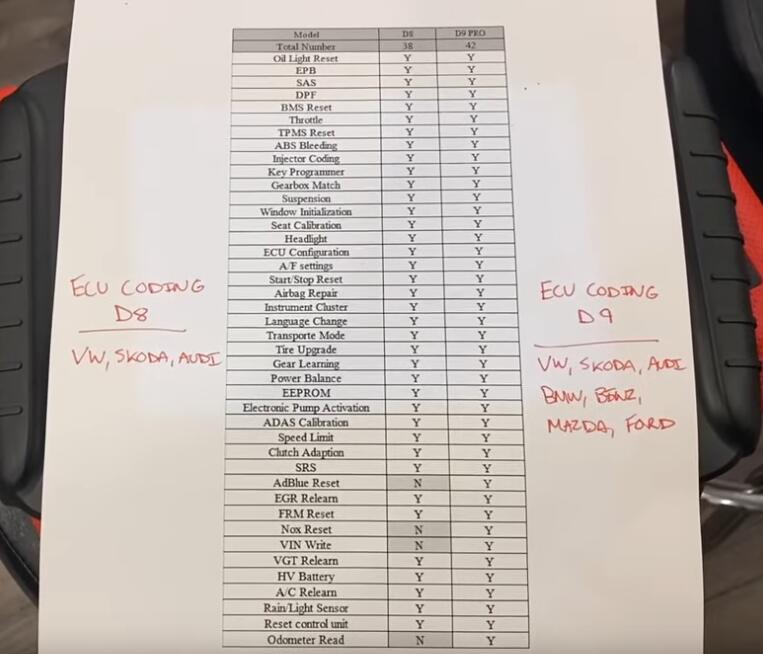 Model D8 D9 PRO
Total Number 38 42
Oil Light Reset Y Y
EPB Y Y
SAS Y Y
DPF Y Y
BMS Reset Y Y
Throttle Y Y
TPMS Reset Y Y
ABS Bleeding Y Y
Injector Coding Y Y
Key Programmer Y Y
Gearbox Match Y Y
Suspension Y Y
Window Initialization Y Y
Seat Calibration Y Y
Headlight Y Y
ECU Configuration Y Y
A/F settings Y Y
Start/Stop Reset Y Y
Airbag Repair Y Y
Instrument Cluster Y Y
Language Change Y Y
Transporte Mode Y Y
Tire Upgrade Y Y
Gear Learning Y Y
Power Balance Y Y
EEPROM Y Y
Electronic Pump Activation Y Y
ADAS Calibration Y Y
Speed Limit Y Y
Clutch Adaption Y Y
SRS Y Y
AdBlue Reset N Y
EGR Relearn Y Y
FRM Reset Y Y
Nox Reset N Y
VIN Write N Y
VGT Relearn Y Y
HV Battery Y Y
A/C Relearn Y Y
Rain/Light Sensor Y Y
Reset control unit Y Y
Odometer Read N Y
ECU CODING
D8
VW, SKODA, AUDI
ECU CODING
D9
VW, SKODA, AUDI
BMW, BENZ,
MAZDA, FORD